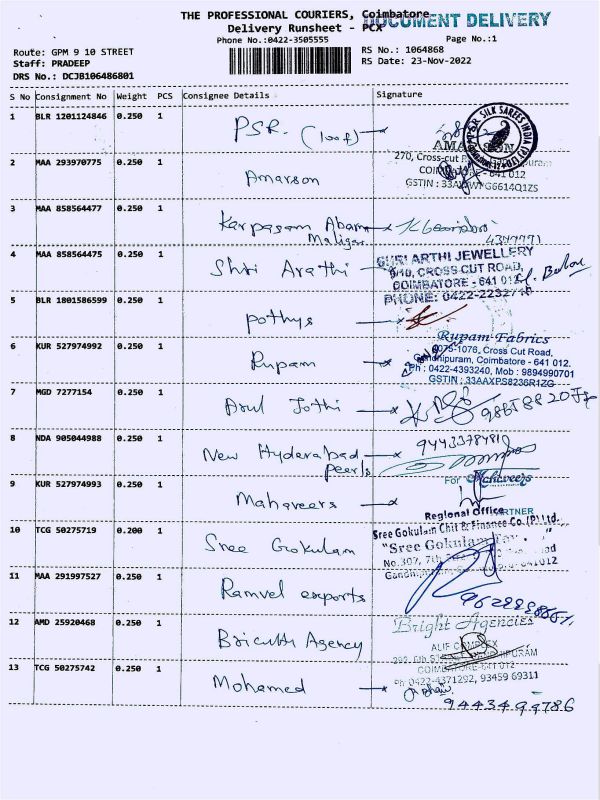 THE PROFESSIONAL COURIERS, Coimbatore
DOCUMENT DELIVERY
Delivery Runsheet - PCX
Phone No.:0422-3505555
Page No.:1
Route: GPM 9 10 STREET
RS No.: 1064868
Staff: PRADEEP
RS Date: 23-Nov-2022
DRS No.: DCJB106486801
S No Consignment No Weight PCS Consignee Details Signature
1 BLR 1201124846 0.250 1 PSR. (100f)
P.S.R. SILK SAREES INDIA (P) LTD
270, Cross-cut
COIMBATORE - 641 012
2 MAA 293970775 0.250 1 Amarson
3 MAA 858564477 0.250 1 Karpagam Abara Maligai
4344441
4 MAA 858564475 0.250 1 Shri Arathi
GURU ARTHI JEWELLERY
CROSS CUT ROAD,
COIMBATORE - 641 012
PHONE: 0422-22327
5 BLR 1801586599 0.250 1 pothys
6 KUR 527974992 0.250 1 Rupam
Rupam Fabrics
1075-1076, Cross Cut Road,
Gandhipuram, Coimbatore - 641 012.
Ph : 0422-4393240, Mob : 9894990701
GSTIN : 33AAXPS8236R1ZG
7 MGD 7277154 0.250 1 Arul Jothi
8 NDA 905044988 0.250 1 New Hyderabad pearls
For Mahaveers
PARTNER
9 KUR 527974993 0.250 1 Mahaveers
Regional Office
Sree Gokulam Chit & Finance Co.(P) Ltd.,
"Sree Gokulam
10 TCG 50275719 0.200 1 Sree Gokulam
11 MAA 291997527 0.250 1 Ramvel exports
12 AMD 25920468 0.250 1 Agency
Bright Agencies
ALIF COMPLEX
COIMBATORE-641 012
Ph 0422-4371292, 93459 69311
13 TCG 50275742 0.250 1 Mohamed
9443494786